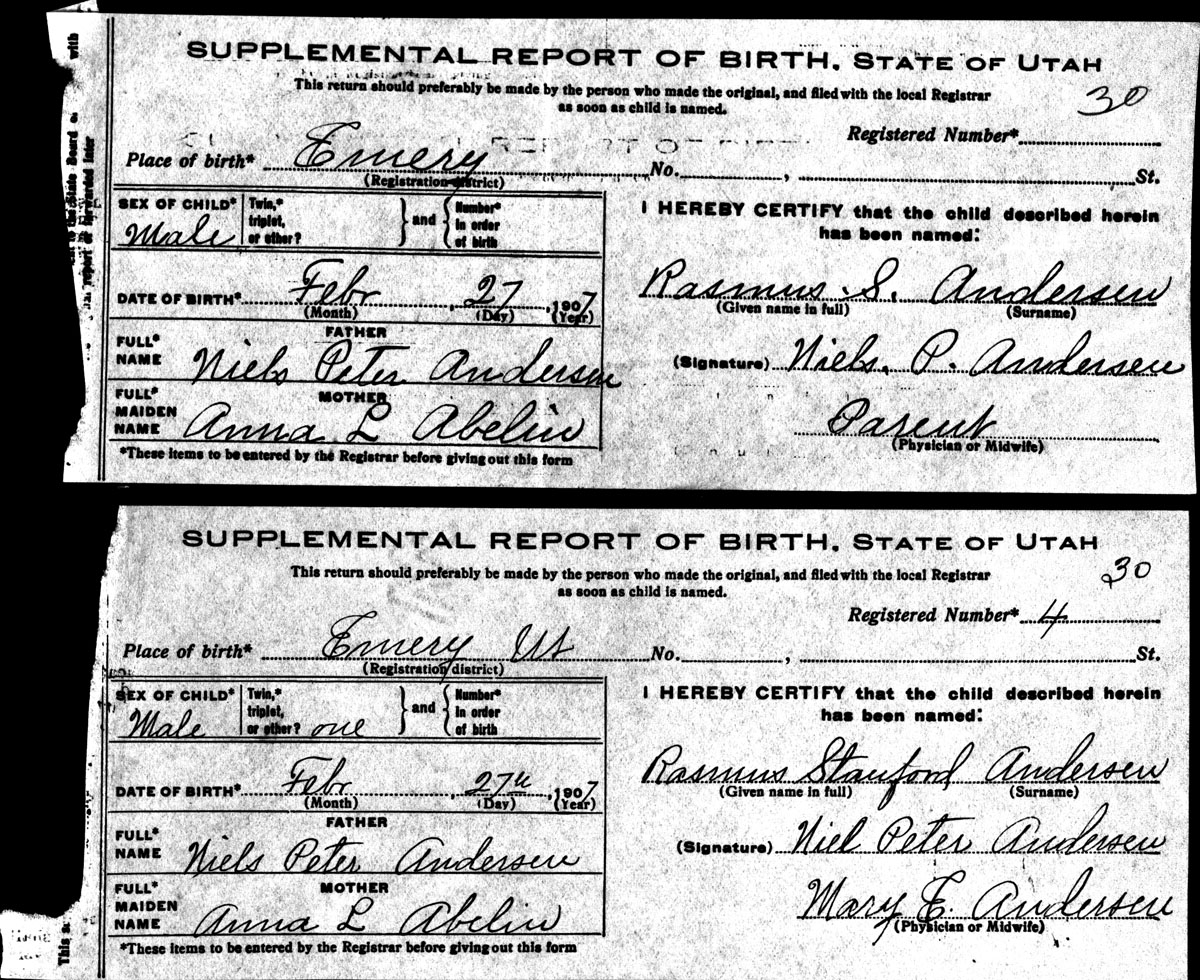 SUPPLEMENTAL REPORT OF BIRTH, STATE OF UTAH
This return should preferably be made by the person who made the original, and filed with the local Registrar
as soon as child is named.
30
Registered Number*
Place of birth* Emery No. , St.
(Registration district)
SEX OF CHILD* Male
Twin,* triplet, or other? } and { Number* in order of birth
DATE OF BIRTH* Febr , 27 , 1907
(Month) (Day) (Year)
FATHER
FULL* NAME Niels Peter Andersen
MOTHER
FULL* MAIDEN NAME Anna L Abelin
*These items to be entered by the Registrar before giving out this form
I HEREBY CERTIFY that the child described herein
has been named:
Rasmus S. Andersen
(Given name in full) (Surname)
(Signature) Niels. P. Andersen
Parent
(Physician or Midwife)
with
State Board
report or forwarded later
SUPPLEMENTAL REPORT OF BIRTH, STATE OF UTAH
This return should preferably be made by the person who made the original, and filed with the local Registrar
as soon as child is named.
30
Registered Number* 4
Place of birth* Emery Ut No. , St.
(Registration district)
SEX OF CHILD* Male
Twin,* triplet, or other? one } and { Number* in order of birth
DATE OF BIRTH* Febr , 27th , 1907
(Month) (Day) (Year)
FATHER
FULL* NAME Niels Peter Andersen
MOTHER
FULL* MAIDEN NAME Anna L Abelin
*These items to be entered by the Registrar before giving out this form
I HEREBY CERTIFY that the child described herein
has been named:
Rasmus Stanford Andersen
(Given name in full) (Surname)
(Signature) Niel Peter Andersen
Mary E. Andersen
(Physician or Midwife)
This